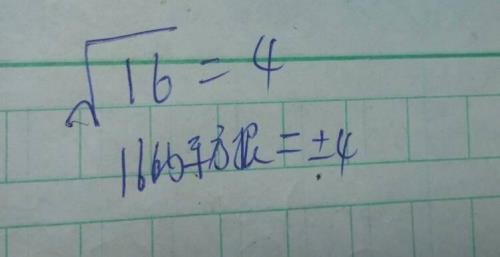 √16 = 4
16的平方根 = ±4